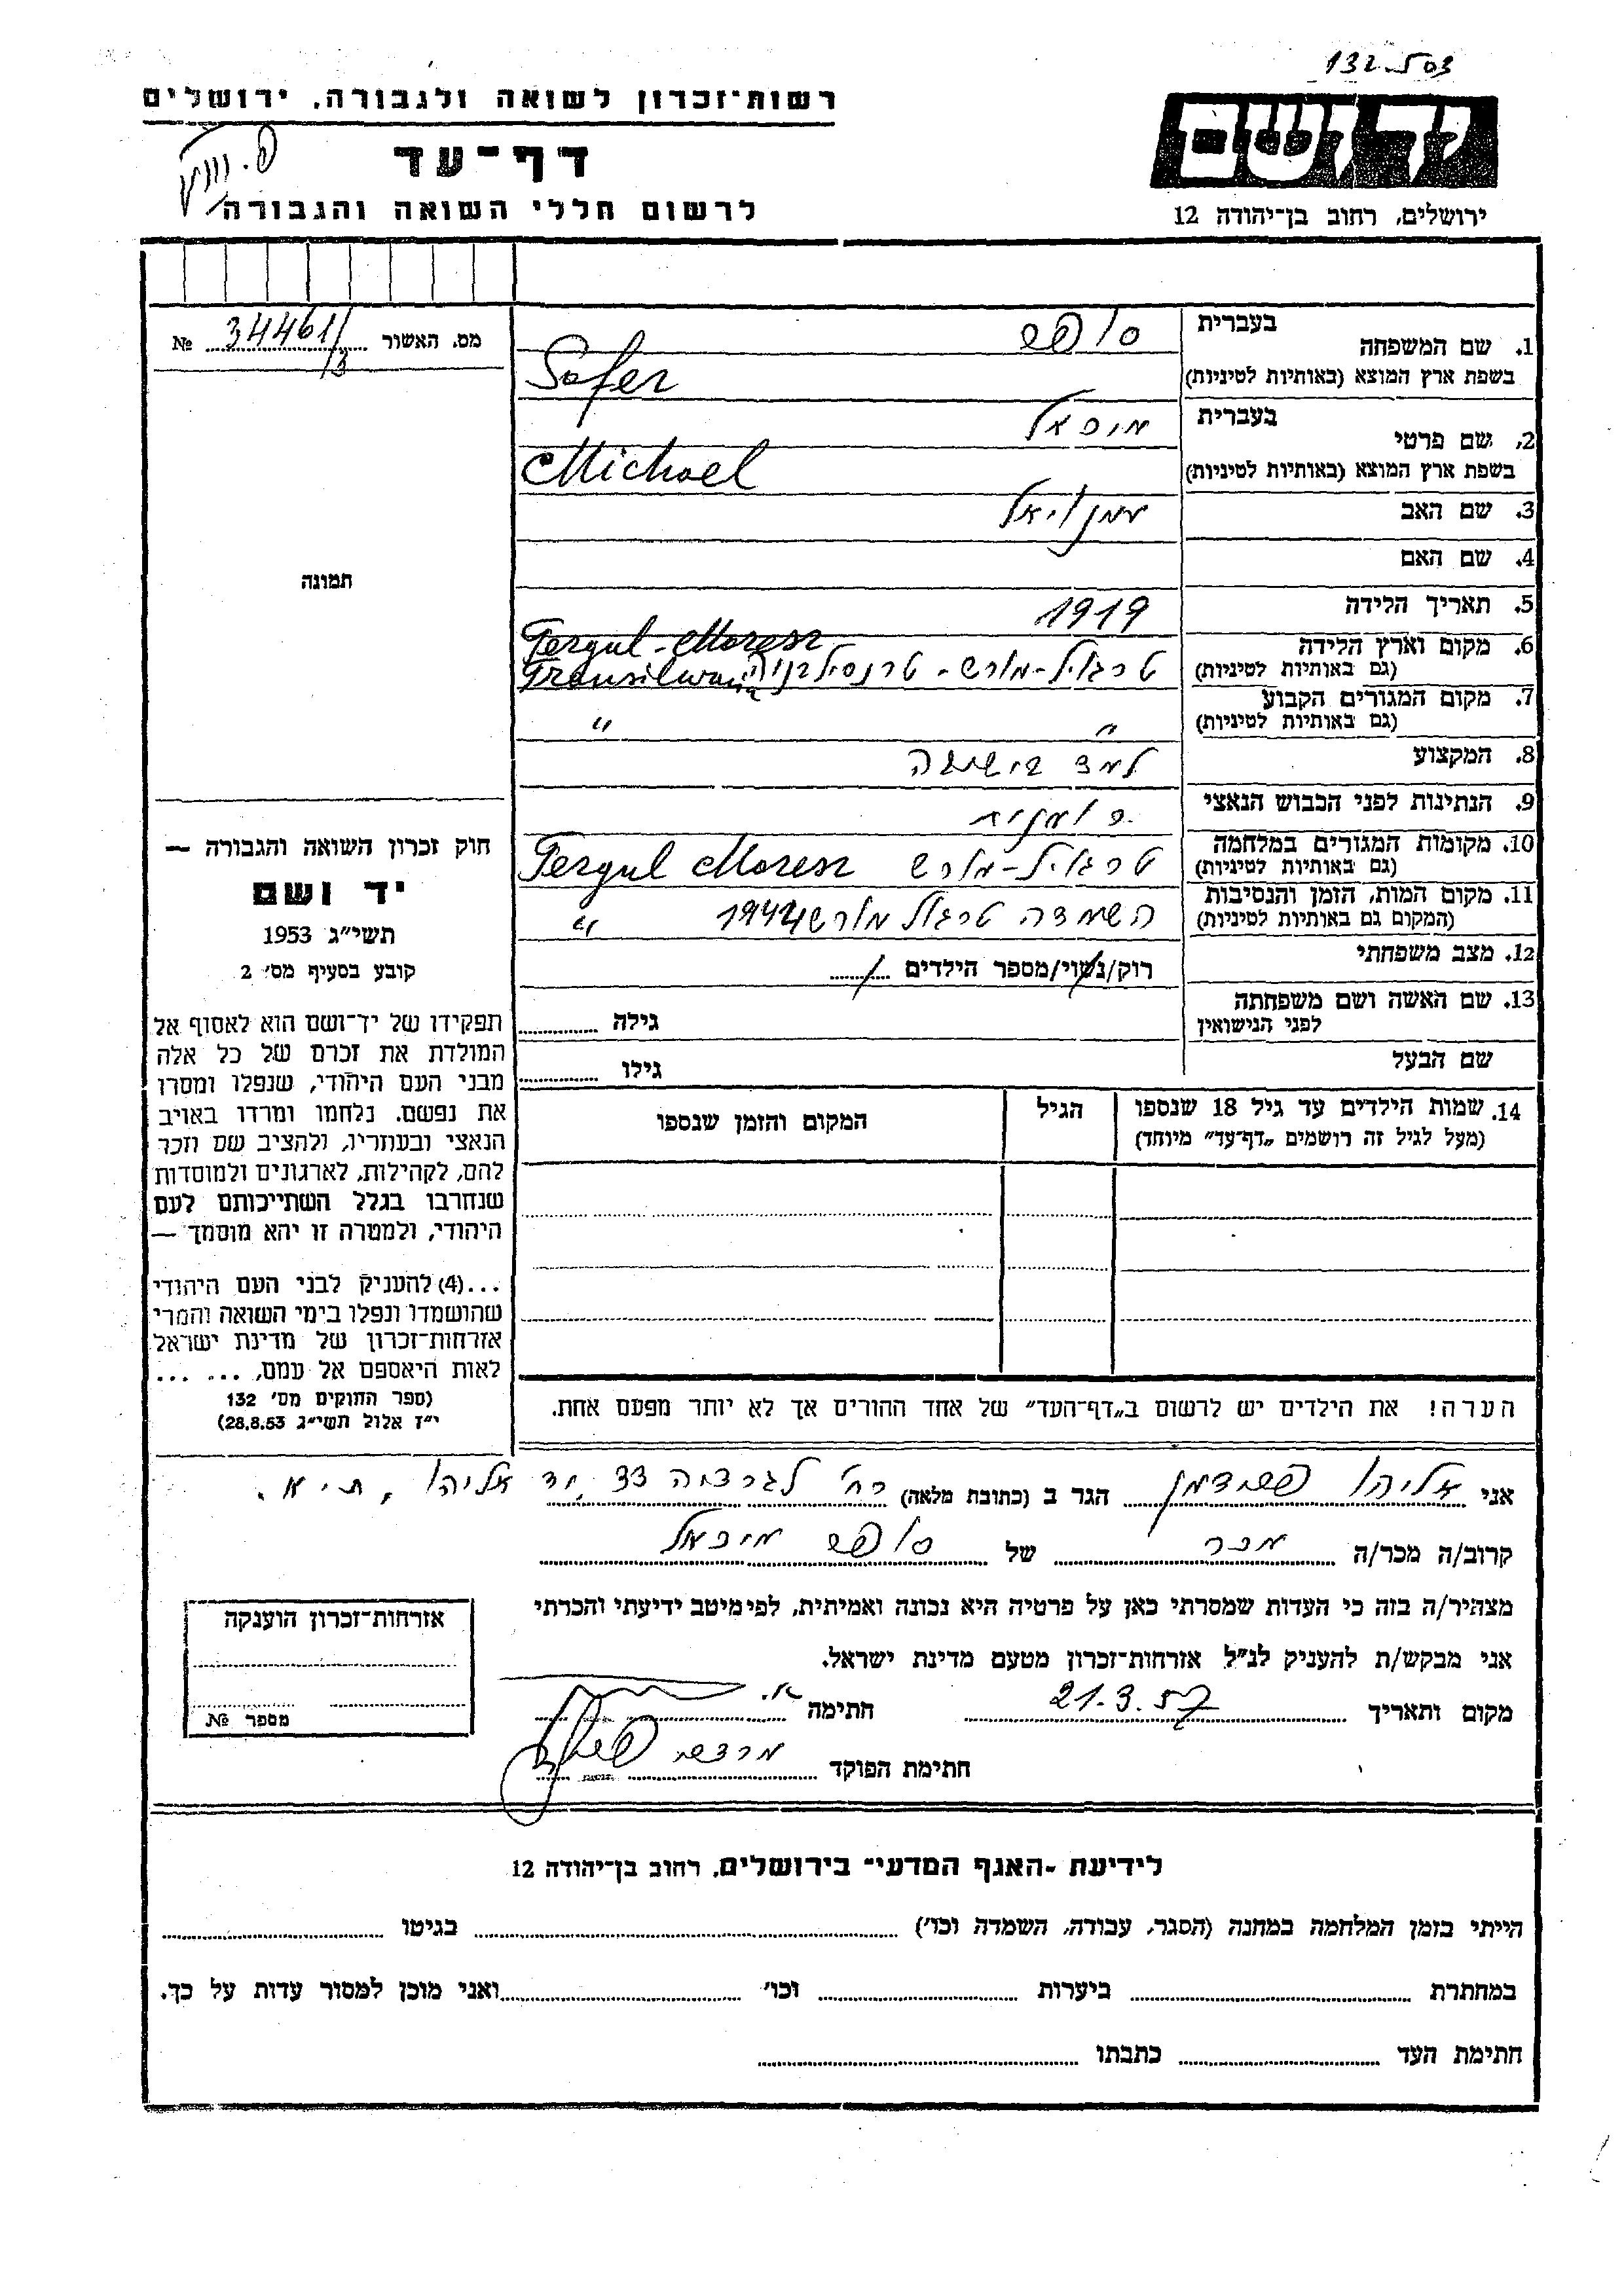 רשות־זכרון לשואה ולגבורה, ירושלים
דף־עד
לרשום חללי השואה והגבורה
יד ושם
ירושלים, רחוב בן־יהודה 12
1. שם המשפחה
בעברית
בשפת ארץ המוצא (באותיות לטיניות)
Safer
2. שם פרטי
בעברית מיכאל
בשפת ארץ המוצא (באותיות לטיניות)
Michael
3. שם האב עמנואל
4. שם האם
5. תאריך הלידה 1919
6. מקום וארץ הלידה
(גם באותיות לטיניות)
7. מקום המגורים הקבוע
(גם באותיות לטיניות) " "
8. המקצוע למד בישיבה
9. הנתינות לפני הכבוש הנאצי רומנית
10. מקומות המגורים במלחמה
(גם באותיות לטיניות)
11. מקום המות, הזמן והנסיבות
(המקום גם באותיות לטיניות) השמדה 1944 "
12. מצב משפחתי רוק/נשוי/מספר הילדים
13. שם האשה ושם משפחתה
לפני הנישואין גילה
שם הבעל גילו
14. שמות הילדים עד גיל 18 שנספו הגיל המקום והזמן שנספו
(מעל לגיל זה רושמים „דף־עד" מיוחד)
הערה! את הילדים יש לרשום ב„דף־העד" של אחד ההורים אך לא יותר מפעם אחת.
מס. האשור 34461/ №
/3
תמונה
חוק זכרון השואה והגבורה —
יד ושם
תשי"ג 1953
קובע בסעיף מס׳ 2
תפקידו של יד־ושם הוא לאסוף אל
המולדת את זכרם של כל אלה
מבני העם היהודי, שנפלו ומסרו
את נפשם. נלחמו ומרדו באויב
הנאצי ובעוזריו, ולהציב שם וזכר
להם, לקהילות, לארגונים ולמוסדות
שנחרבו בגלל השתייכותם לעם
היהודי, ולמטרה זו יהא מוסמך —
...(4) להעניק לבני העם היהודי
שהושמדו ונפלו בימי השואה והמרי
אזרחות־זכרון של מדינת ישראל
לאות היאספם אל עמם, ... ...
(ספר החוקים מס׳ 132
י"ז אלול תשי"ג 28.8.53)
אני אליהו הגר ב (כתובת מלאה) רח׳ 33 יד אליהו, ת"א.
קרוב/ה מכר/ה מכר של מיכאל
מצהיר/ה בזה כי העדות שמסרתי כאן על פרטיה היא נכונה ואמיתית, לפי מיטב ידיעתי והכרתי
אני מבקש/ת להעניק לנ"ל אזרחות־זכרון מטעם מדינת ישראל.
מקום ותאריך 21.3.57 חתימה
חתימת הפוקד
אזרחות־זכרון הוענקה
מספר №
לידיעת ־האגף המדעי־ בירושלים, רחוב בן־יהודה 12
הייתי בזמן המלחמה במחנה (הסגר, עבודה, השמדה וכו׳) בגיטו
במחתרת ביערות וכו׳ ואני מוכן למסור עדות על כך.
חתימת העד כתבתו